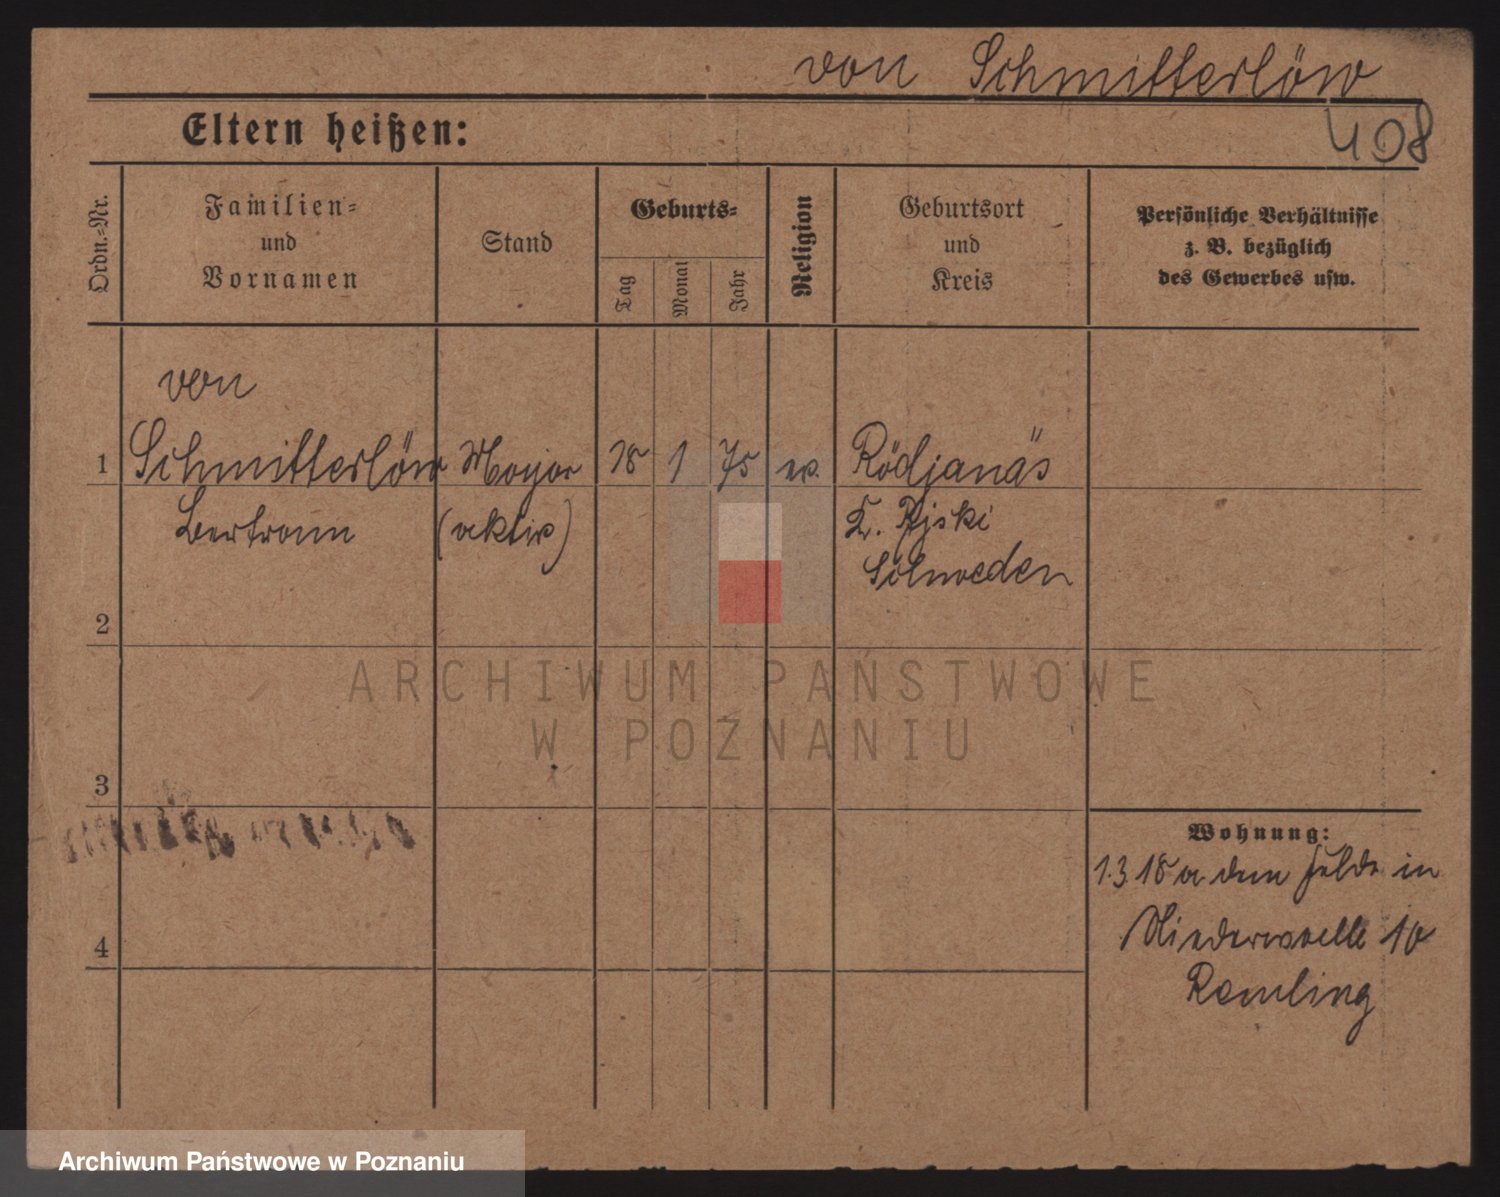 von Schmitterlöw
408
Eltern heißen:
Ordn.-Nr.
Familien-
und
Vornamen
Stand
Geburts-
Tag
Monat
Jahr
Religion
Geburtsort
und
Kreis
Persönliche Verhältnisse
z. B. bezüglich
des Gewerbes usw.
von
1
Schmitterlöw
Major
18
1
75
ev.
Rödjanäs
Bertram
(aktiv)
K. Rjski
Schweden
2
ARCHIWUM PAŃSTWOWE
W POZNANIU
3
Wohnung:
1.3.18 a. dem Felde in
4
Niederwalle 10
Remling
Archiwum Państwowe w Poznaniu